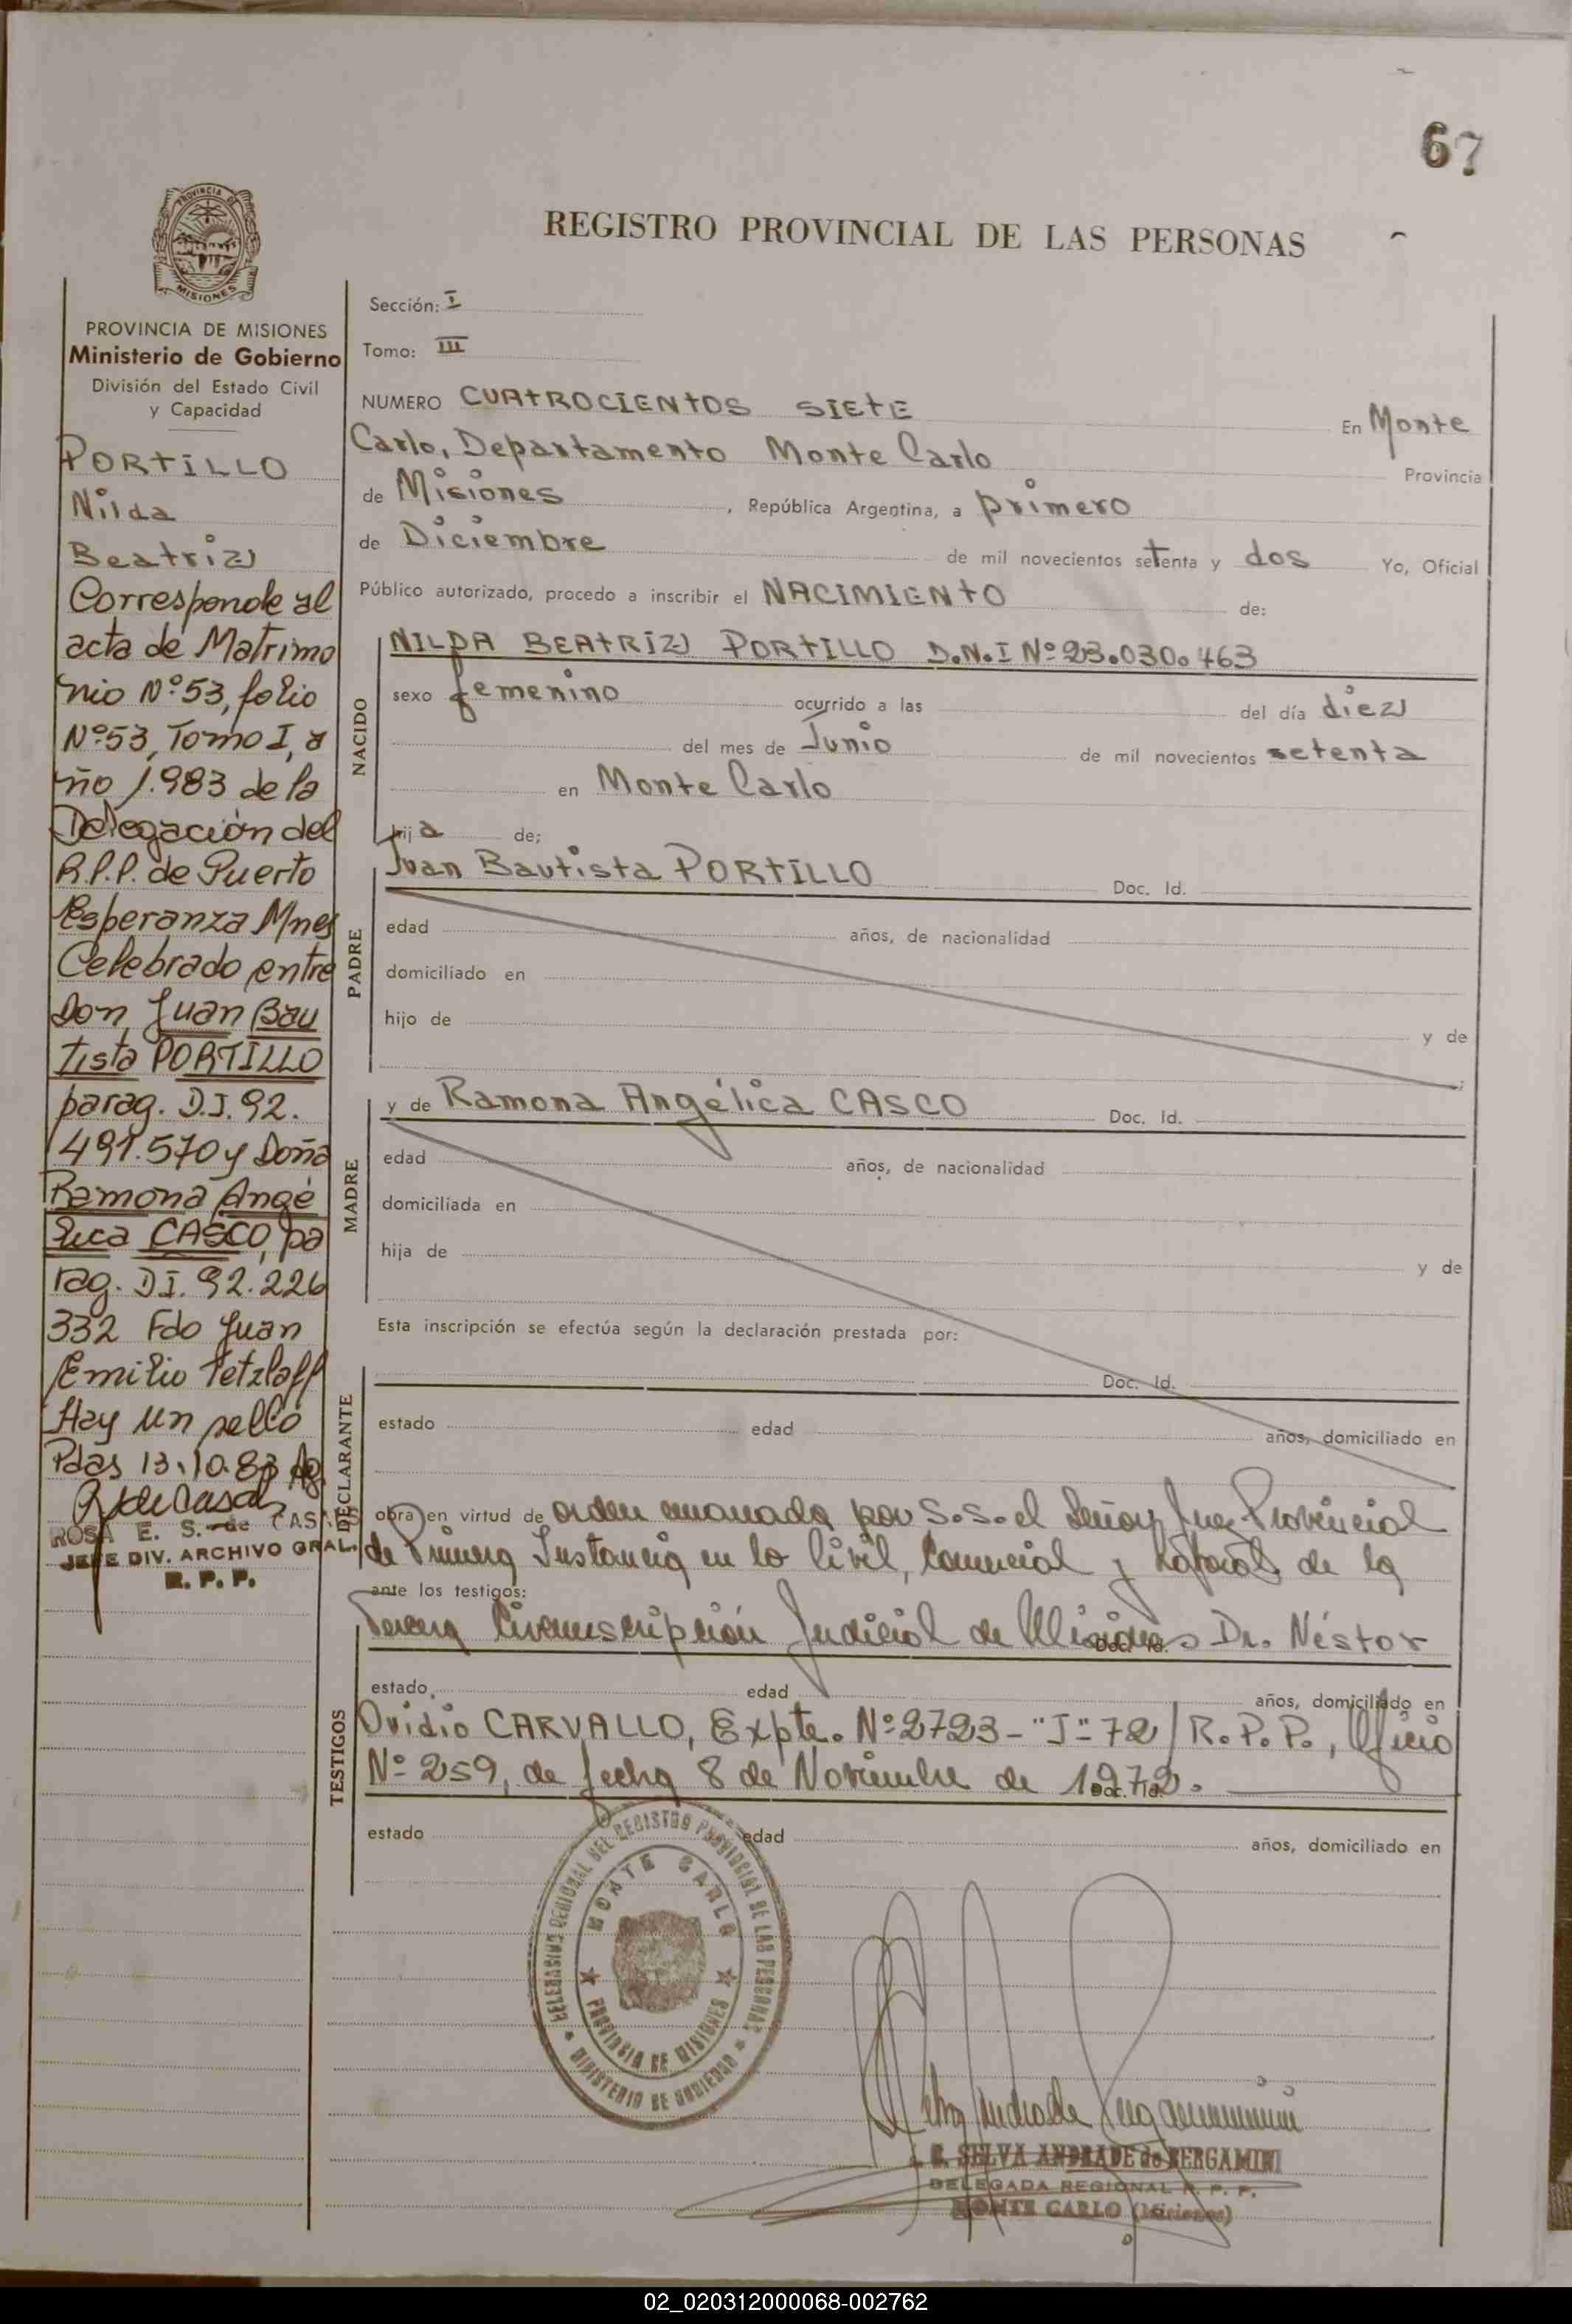 67
REGISTRO PROVINCIAL DE LAS PERSONAS
PROVINCIA DE MISIONES
Ministerio de Gobierno
División del Estado Civil
y Capacidad
PORTILLO
Nilda
Beatriz
Corresponde al
acta de Matrimo
nio Nº53, folio
Nº53, Tomo I, a
ño 1.983 de la
Delegación del
R.P.P. de Puerto
Esperanza Mnes
Celebrado entre
Don Juan Bau
tista PORTILLO
parag. D.I. 92.
491.570 y Doña
Ramona Angé
lica CASCO, pa
rag. DI. 92.226
332 Fdo Juan
Emilio Tetzlaff
Hay un sello
Pdas 13.10.83
ROSA E. S. de CASALES
JEFE DIV. ARCHIVO GRAL.
R. P. P.
Sección: I
Tomo: III
NUMERO CUATROCIENTOS SIETE En Monte
Carlo, Departamento Monte Carlo Provincia
de Misiones, República Argentina, a primero
de Diciembre de mil novecientos setenta y dos Yo, Oficial
Público autorizado, procedo a inscribir el NACIMIENTO de:
NACIDO
NILDA BEATRIZ PORTILLO D.N.I Nº 23.030.463
sexo femenino ocurrido a las del día diez
del mes de Junio de mil novecientos setenta
en Monte Carlo
hija de;
PADRE
Juan Bautista PORTILLO Doc. Id.
edad años, de nacionalidad
domiciliado en
hijo de y de
MADRE
y de Ramona Angélica CASCO Doc. Id.
edad años, de nacionalidad
domiciliada en
hija de y de
Esta inscripción se efectúa según la declaración prestada por:
DECLARANTE
Doc. Id.
estado edad años, domiciliado en
obra en virtud de orden emanada por S.S. el Señor Juez Provincial
de Primera Instancia en lo Civil, Comercial y Laboral de la
ante los testigos:
TESTIGOS
Tercera Circunscripción Judicial de Misiones Dr. Néstor
Doc. Id.
estado edad años, domiciliado en
Ovidio CARVALLO, Expte. Nº 2723-"J"-72/R.P.P., Oficio
Nº 259, de fecha 8 de Noviembre de 1972.
Doc. Id.
estado edad años, domiciliado en
DELEGACION REGIONAL DEL REGISTRO PROVINCIAL DE LAS PERSONAS
MINISTERIO DE GOBIERNO
MONTE CARLO
PROVINCIA DE MISIONES
SELVA ANDRADE de BERGAMINI
DELEGADA REGIONAL R. P. P.
MONTE CARLO (Misiones)
02_020312000068-002762